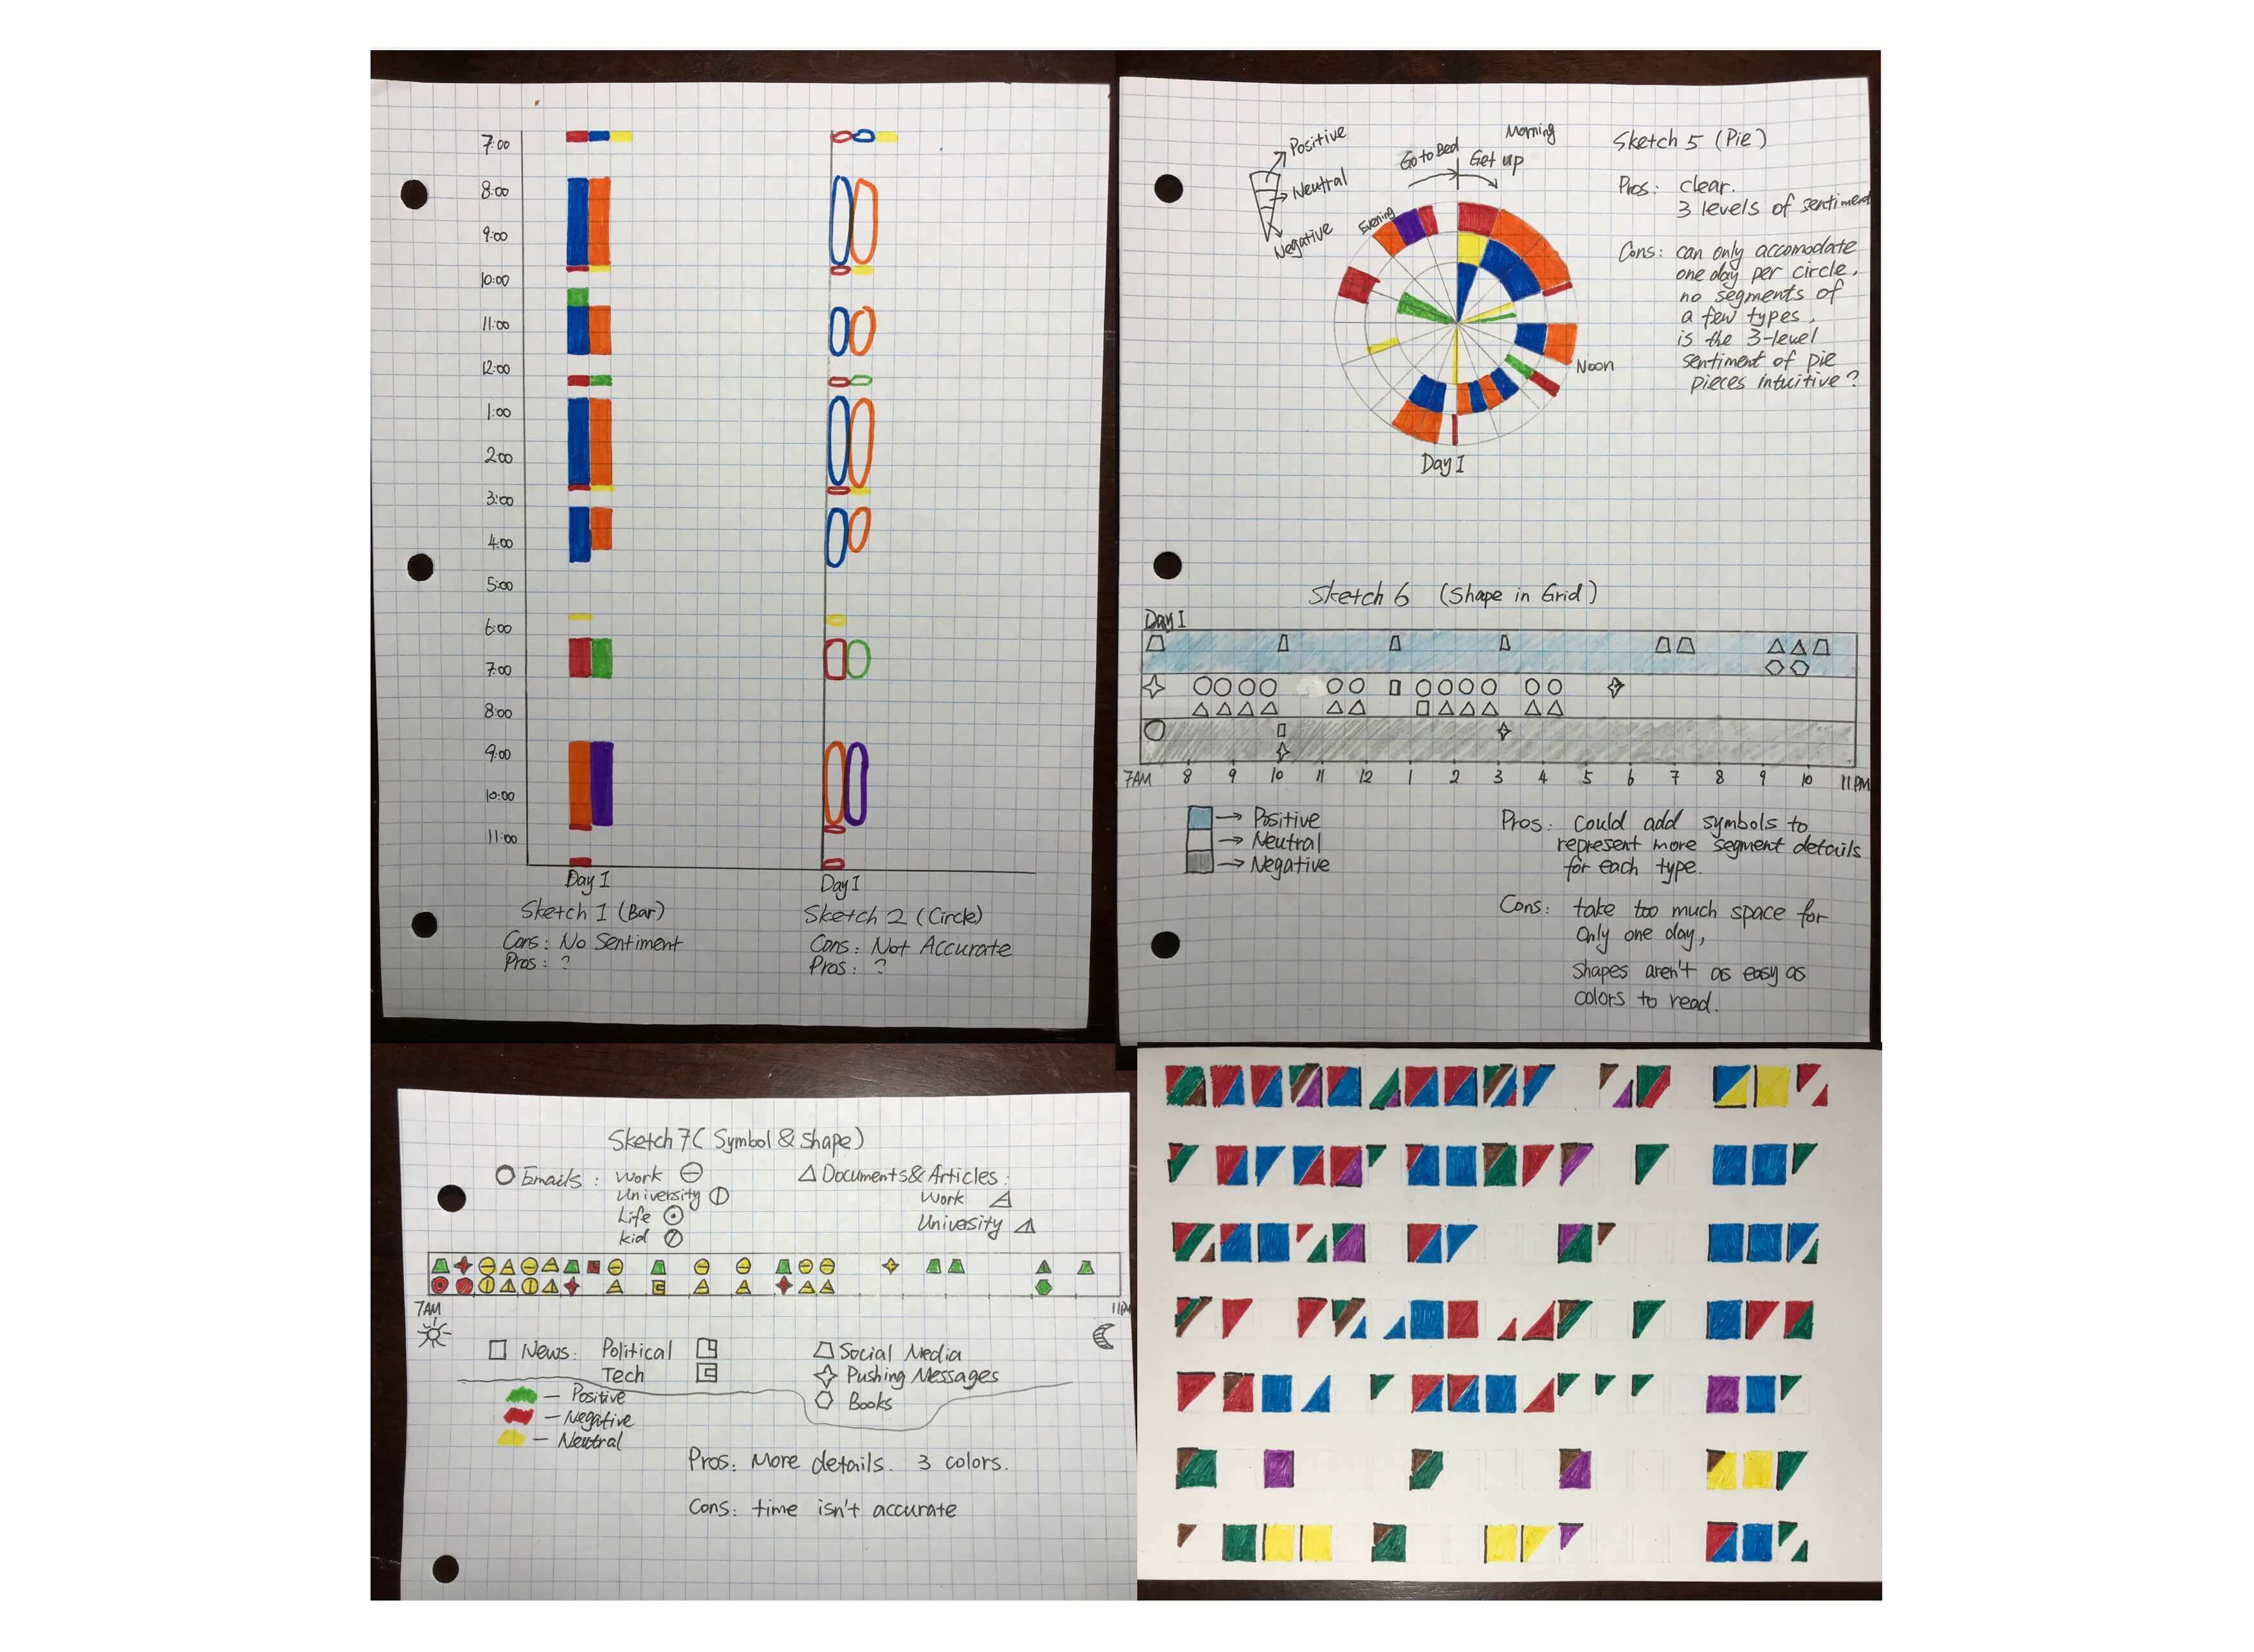 7:00
8:00
9:00
10:00
11:00
12:00
1:00
2:00
3:00
4:00
5:00
6:00
7:00
8:00
9:00
10:00
11:00
Day 1
Day 1
Sketch 1 (Bar)
Cons: No Sentiment
Pros: ?
Sketch 2 (Circle)
Cons: Not Accurate
Pros: ?
Positive
Neutral
Negative
Go to Bed
Morning
Get up
Evening
Noon
Day 1
Sketch 5 (Pie)
Pros: clear.
3 levels of sentiment
Cons: can only accomodate
one day per circle,
no segments of
a few types,
is the 3-level
sentiment of pie
pieces intuitive?
Sketch 6 (Shape in Grid)
Day 1
7AM 8 9 10 11 12 1 2 3 4 5 6 7 8 9 10 11PM
→ Positive
→ Neutral
→ Negative
Pros: Could add symbols to
represent more segment details
for each type.
Cons: take too much space for
only one day,
shapes aren't as easy as
colors to read.
Sketch 7 (Symbol & Shape)
Emails: Work
University
Life
kid
Documents & Articles:
Work
University
7AM
11PM
News: Political
Tech
Social Media
Pushing Messages
Books
— Positive
— Negative
— Neutral
Pros: More details. 3 colors.
Cons: time isn't accurate